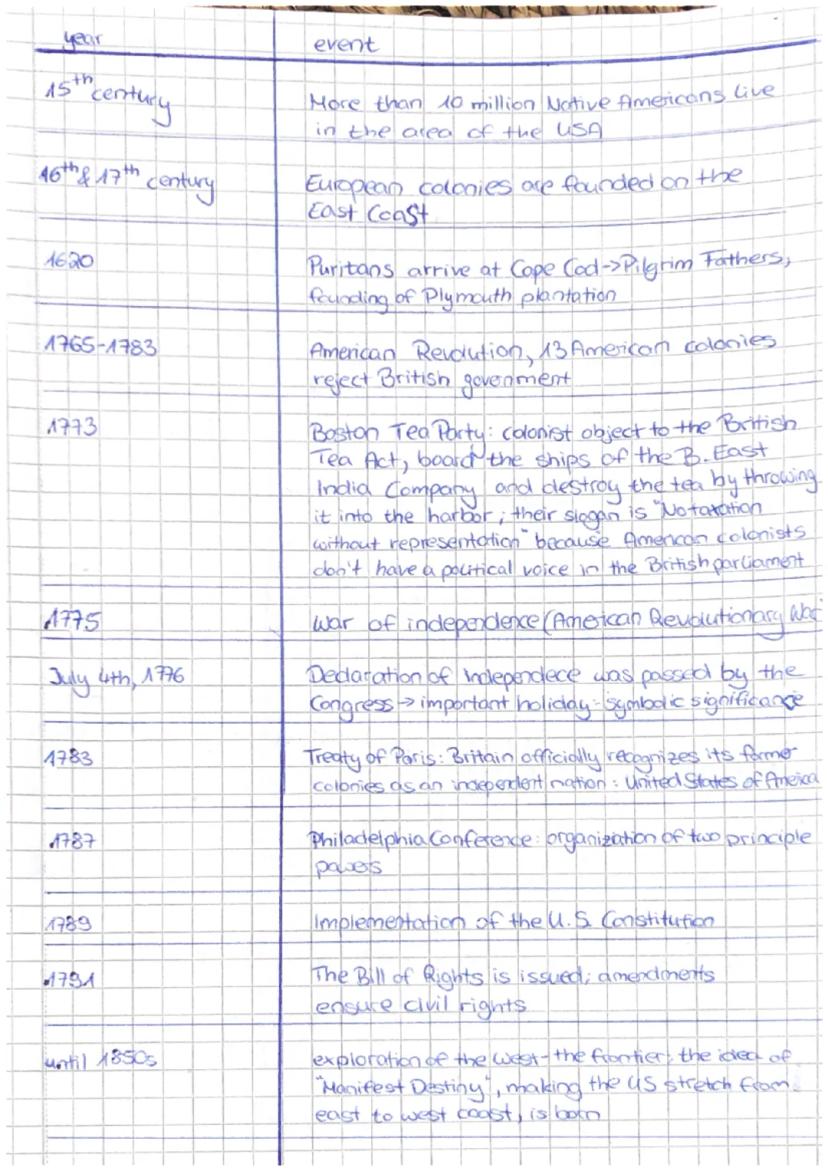 year event
15th century More than 10 million Native Americans live
in the area of the USA
16th & 17th century European colonies are founded on the
East Coast
1620 Puritans arrive at Cape Cod -> Pilgrim Fathers,
founding of Plymouth plantation
1765-1783 American Revolution, 13 American colonies
reject British government
1773 Boston Tea Party: colonist object to the British
Tea Act, board the ships of the B. East
India Company and destroy the tea by throwing
it into the harbor; their slogan is "No taxation
without representation" because American colonists
don't have a political voice in the British parliament
1775 War of independence (American Revolutionary War
July 4th, 1776 Declaration of Independece was passed by the
Congress -> important holiday - symbolic significance
1783 Treaty of Paris: Britain officially recognizes its former
colonies as an independent nation: United States of America
1787 Philadelphia Conference: organization of two principle
powers
1789 Implementation of the U.S. Constitution
1791 The Bill of Rights is issued; amendments
ensure civil rights
until 1850s exploration of the west - the frontier; the idea of
"Manifest Destiny", making the US stretch from
east to west coast, is born